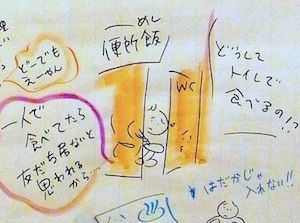 どーでも
えーやん
べんじょめし
便所飯
WC
どうして
トイレで
食べるの!?
一人で
食べてたら
友だち居ないと
思われる
から…
はだかじゃ
入れない!!